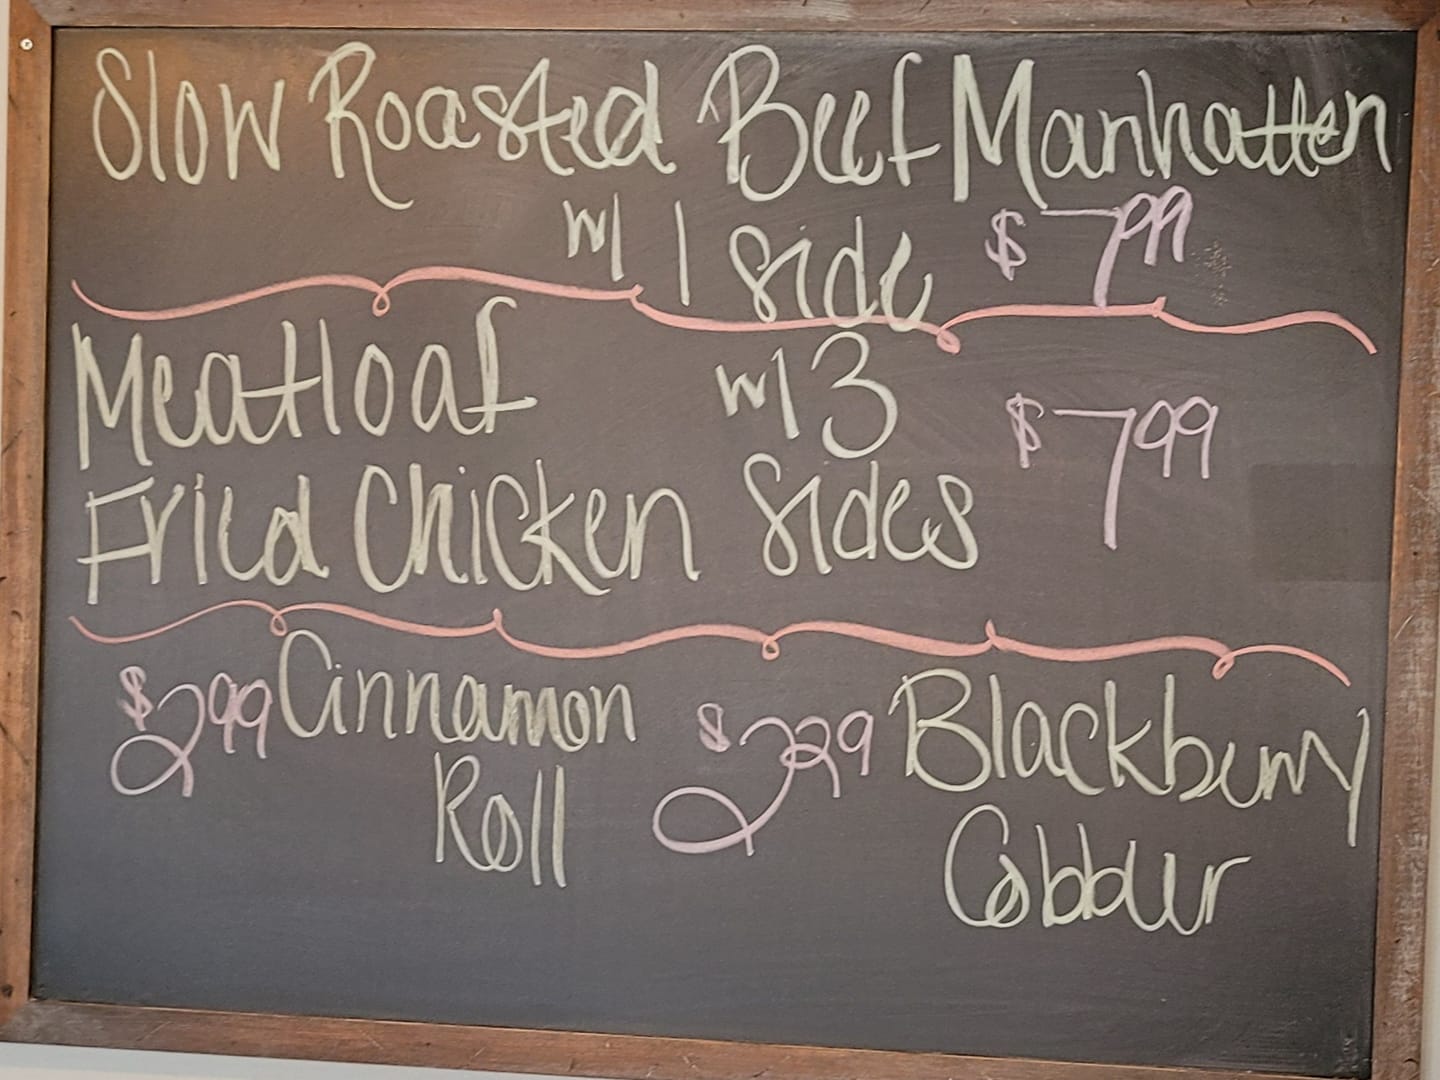 Slow Roasted Beef Manhatten
w/ 1 side $7.99
Meatloaf w/ 3 $7.99
Fried Chicken Sides
$2.99 Cinnamon $2.29 Blackberry
Roll Cobbler